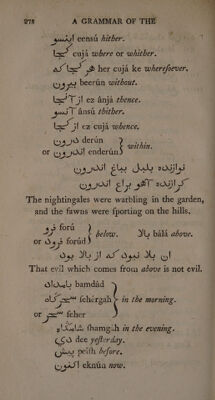 278 A GRAMMAR OF THE
اينسو eensú hither.
كجا cujá where or whither.
هر كجا كه her cujá ke wheresoever.
بيرون beerún without.
از آنجا ez ânjá thence.
آنسو ânsú thither.
از كجا ez cujá whence.
درون derún
or اندرون enderún } within.
نوازنده بلبل بباغ اندرون
The nightingales were warbling in the garden,
and the fawns were sporting on the hills.
فرو forú
or فرود forúd } below. بالا bálá above.
ان بلا نبود كه از بالا بود
That evil which comes from above is not evil.
بامداد bamdád
سحرگاه sehérgah
or سحر seher } in the morning.
شامگاه shamgah in the evening.
دي dee yesterday.
پيش peish before.
اكنون eknún now.